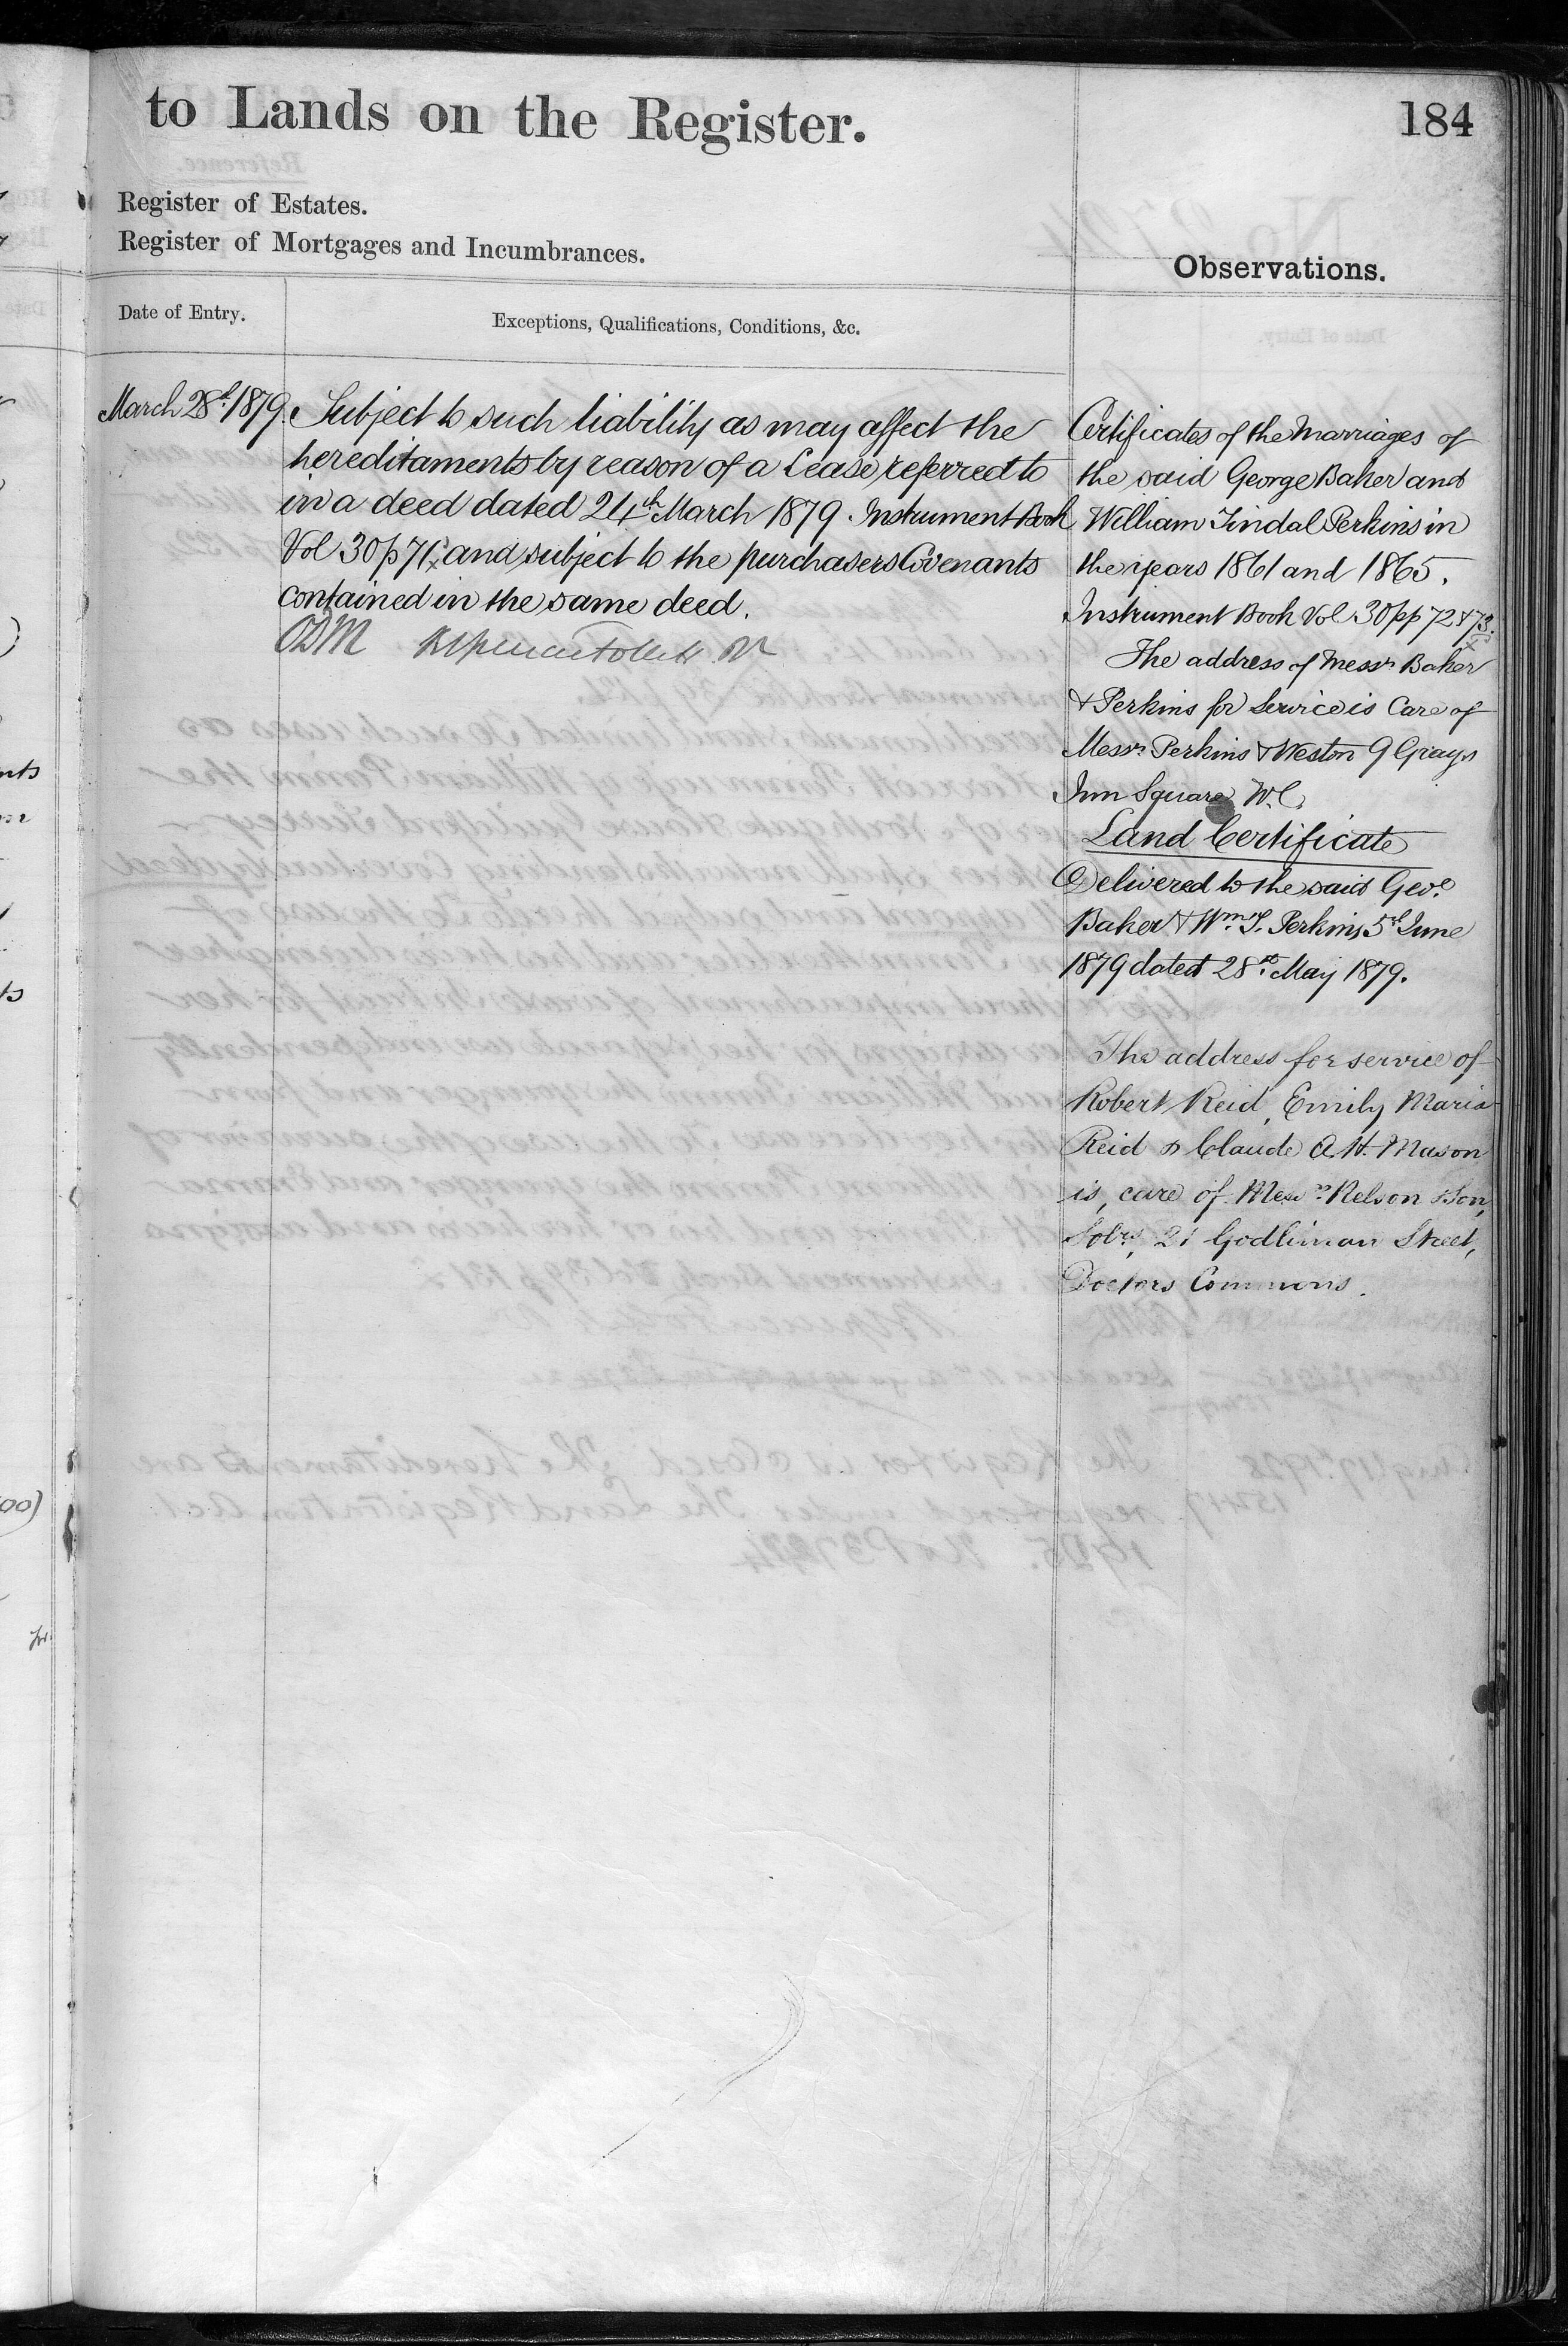 to Lands on the Register.
184
Register of Estates.
Register of Mortgages and Incumbrances.
Observations.
Date of Entry.
Exceptions, Qualifications, Conditions, &c.
March 28th 1879.
Subject to such liability as may affect the
hereditaments by reason of a Lease referred to
in a deed dated 24th March 1879. Instrument Book
Vol 30 p 71, and subject to the purchasers Covenants
contained in the same deed.
Certificates of the Marriages of
the said George Baker and
William Tindal Perkins in
the years 1861 and 1865.
Instrument Book Vol 30 pp 72 & 73.
The address of Messrs Baker
& Perkins for Service is Care of
Messrs Perkins & Weston 9 Grays
Inn Square W.C.
Land Certificate
Delivered to the said Geoe
Baker & Wm T. Perkins 5th June
1879 dated 28th May 1879.
The address for service of
Robert Reid, Emily Maria
Reid & Claude A. H. Mason
is, care of Messrs Nelson & Son,
Solrs, 21 Godliman Street,
Doctors Commons.